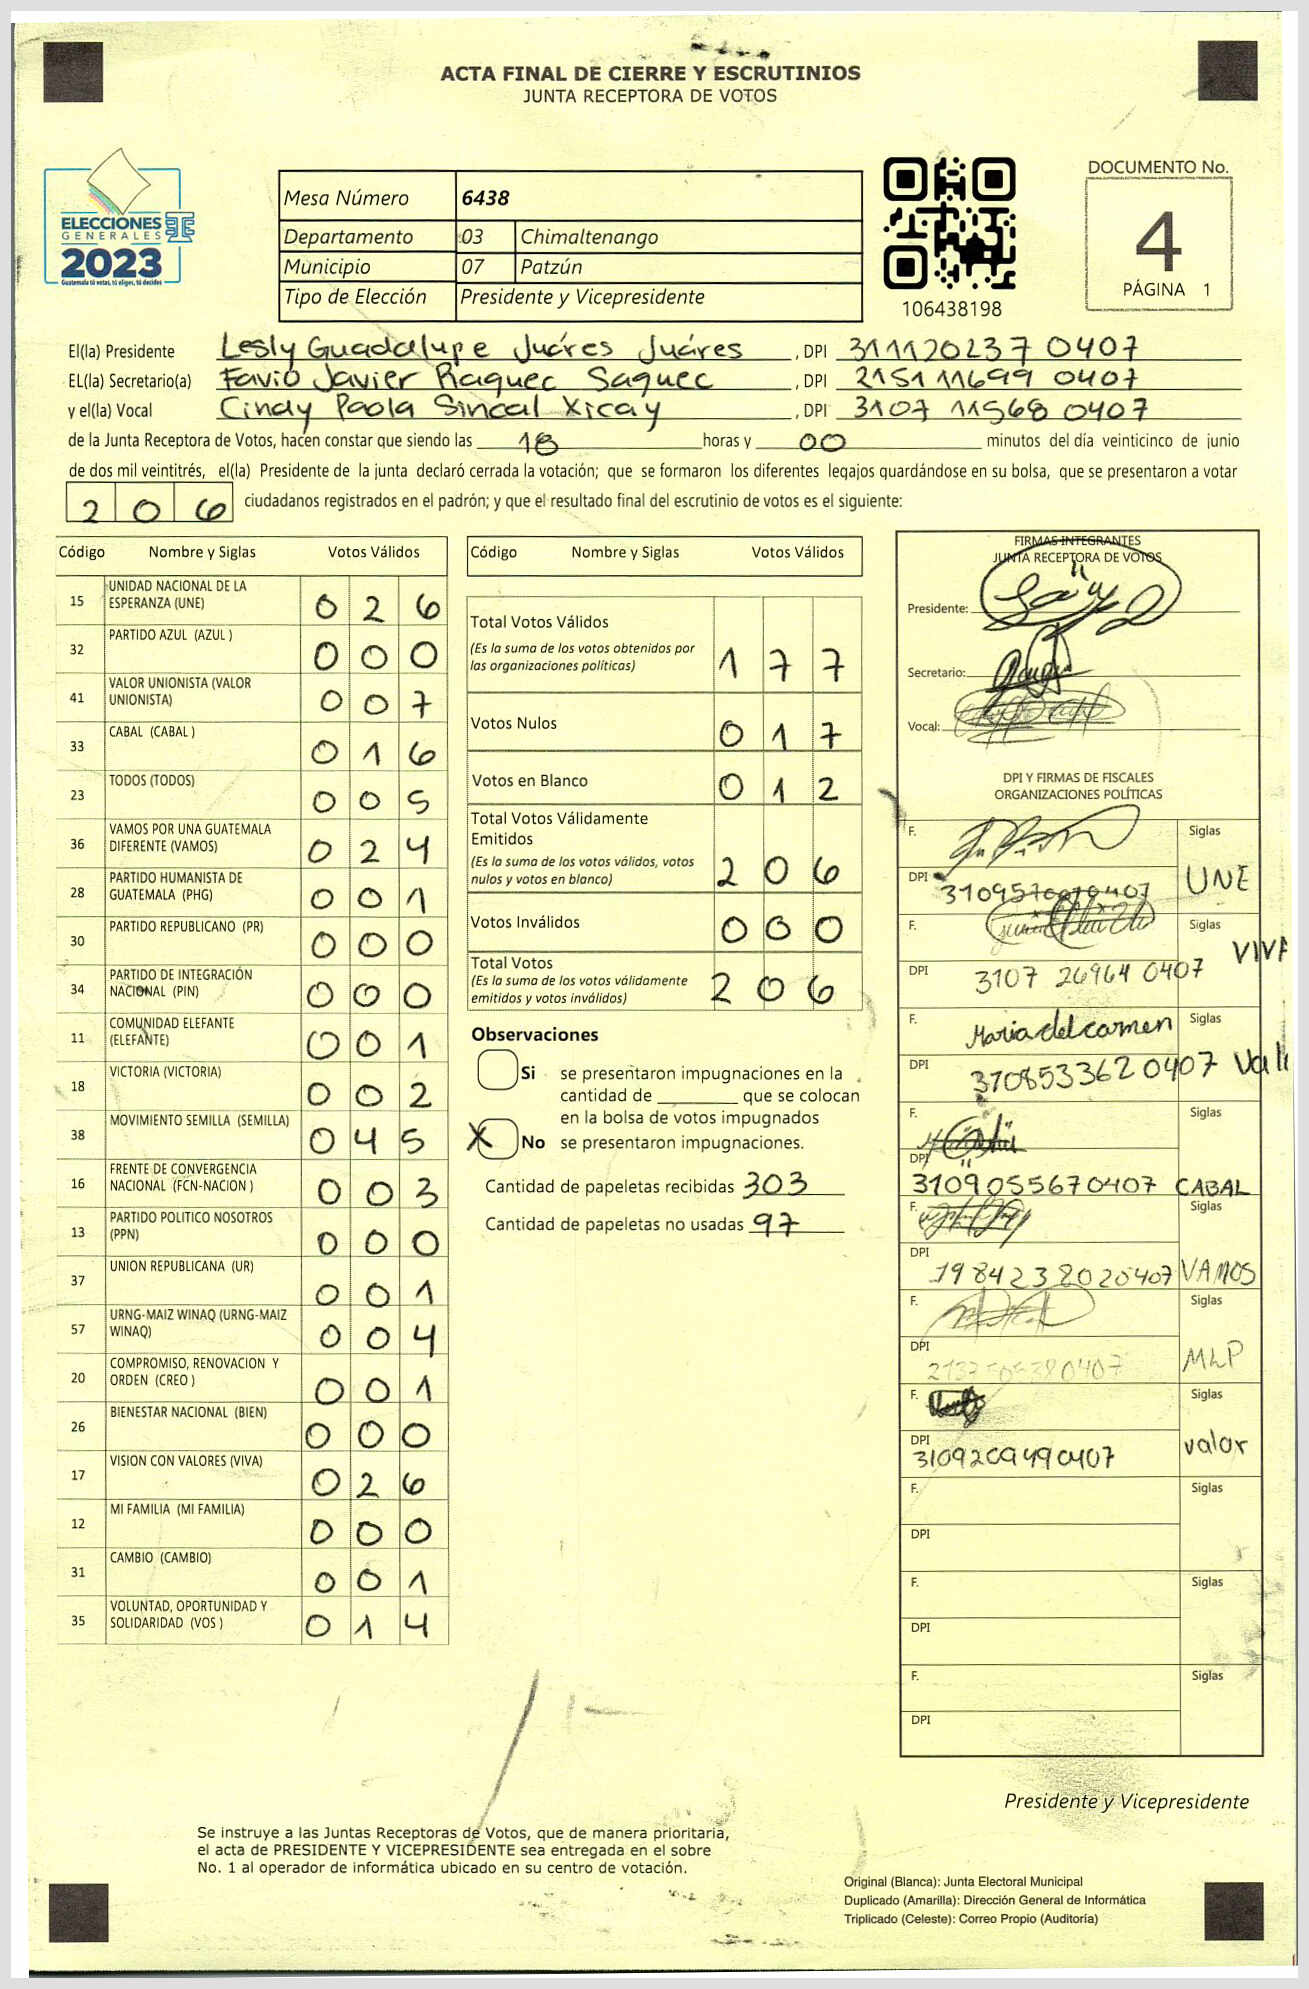 ACTA FINAL DE CIERRE Y ESCRUTINIOS
JUNTA RECEPTORA DE VOTOS
ELECCIONES
GENERALES
2023
Guatemala tú votas, tú eliges, tú decides
Mesa Número 6438
Departamento 03 Chimaltenango
Municipio 07 Patzún
Tipo de Elección Presidente y Vicepresidente
106438198
DOCUMENTO No.
4
PÁGINA 1
El(la) Presidente Lesly Guadalupe Juáres Juáres , DPI 311120237 0407
EL(la) Secretario(a) Favio Javier Raquec Saquec , DPI 215111699 0407
y el(la) Vocal Cindy Paola Sincal Xicay , DPI 3107 11568 0407
de la Junta Receptora de Votos, hacen constar que siendo las 18 horas y 00 minutos del día veinticinco de junio
de dos mil veintitrés, el(la) Presidente de la junta declaró cerrada la votación; que se formaron los diferentes legajos quardándose en su bolsa, que se presentaron a votar
206 ciudadanos registrados en el padrón; y que el resultado final del escrutinio de votos es el siguiente:
Código Nombre y Siglas Votos Válidos
15 UNIDAD NACIONAL DE LA ESPERANZA (UNE) 026
32 PARTIDO AZUL (AZUL ) 000
41 VALOR UNIONISTA (VALOR UNIONISTA) 007
33 CABAL (CABAL ) 016
23 TODOS (TODOS) 005
36 VAMOS POR UNA GUATEMALA DIFERENTE (VAMOS) 024
28 PARTIDO HUMANISTA DE GUATEMALA (PHG) 001
30 PARTIDO REPUBLICANO (PR) 000
34 PARTIDO DE INTEGRACIÓN NACIONAL (PIN) 000
11 COMUNIDAD ELEFANTE (ELEFANTE) 001
18 VICTORIA (VICTORIA) 002
38 MOVIMIENTO SEMILLA (SEMILLA) 045
16 FRENTE DE CONVERGENCIA NACIONAL (FCN-NACION ) 003
13 PARTIDO POLITICO NOSOTROS (PPN) 000
37 UNION REPUBLICANA (UR) 001
57 URNG-MAIZ WINAQ (URNG-MAIZ WINAQ) 004
20 COMPROMISO, RENOVACION Y ORDEN (CREO ) 001
26 BIENESTAR NACIONAL (BIEN) 000
17 VISION CON VALORES (VIVA) 026
12 MI FAMILIA (MI FAMILIA) 000
31 CAMBIO (CAMBIO) 001
35 VOLUNTAD, OPORTUNIDAD Y SOLIDARIDAD (VOS ) 014
Código Nombre y Siglas Votos Válidos
Total Votos Válidos 177
(Es la suma de los votos obtenidos por
las organizaciones políticas)
Votos Nulos 017
Votos en Blanco 012
Total Votos Válidamente
Emitidos 206
(Es la suma de los votos válidos, votos
nulos y votos en blanco)
Votos Inválidos 000
Total Votos 206
(Es la suma de los votos válidamente
emitidos y votos inválidos)
Observaciones
Si se presentaron impugnaciones en la
cantidad de ________ que se colocan
en la bolsa de votos impugnados
X No se presentaron impugnaciones.
Cantidad de papeletas recibidas 303
Cantidad de papeletas no usadas 97
FIRMAS INTEGRANTES
JUNTA RECEPTORA DE VOTOS
Presidente:
Secretario:
Vocal:
DPI Y FIRMAS DE FISCALES
ORGANIZACIONES POLÍTICAS
F. Siglas
DPI 3109570070407 UNE
F. Siglas
DPI 3107 26964 0407 VIVA
F. Maria del carmen Siglas
DPI 310853362 0407
F. Siglas
DPI 3109055670407 CABAL
F. Siglas
DPI 1984238020407 VAMOS
F. Siglas
DPI MLP
F. Siglas
DPI 3109209490407 valor
F. Siglas
DPI
F. Siglas
DPI
F. Siglas
DPI
Presidente y Vicepresidente
Se instruye a las Juntas Receptoras de Votos, que de manera prioritaria,
el acta de PRESIDENTE Y VICEPRESIDENTE sea entregada en el sobre
No. 1 al operador de informática ubicado en su centro de votación.
Original (Blanca): Junta Electoral Municipal
Duplicado (Amarilla): Dirección General de Informática
Triplicado (Celeste): Correo Propio (Auditoría)